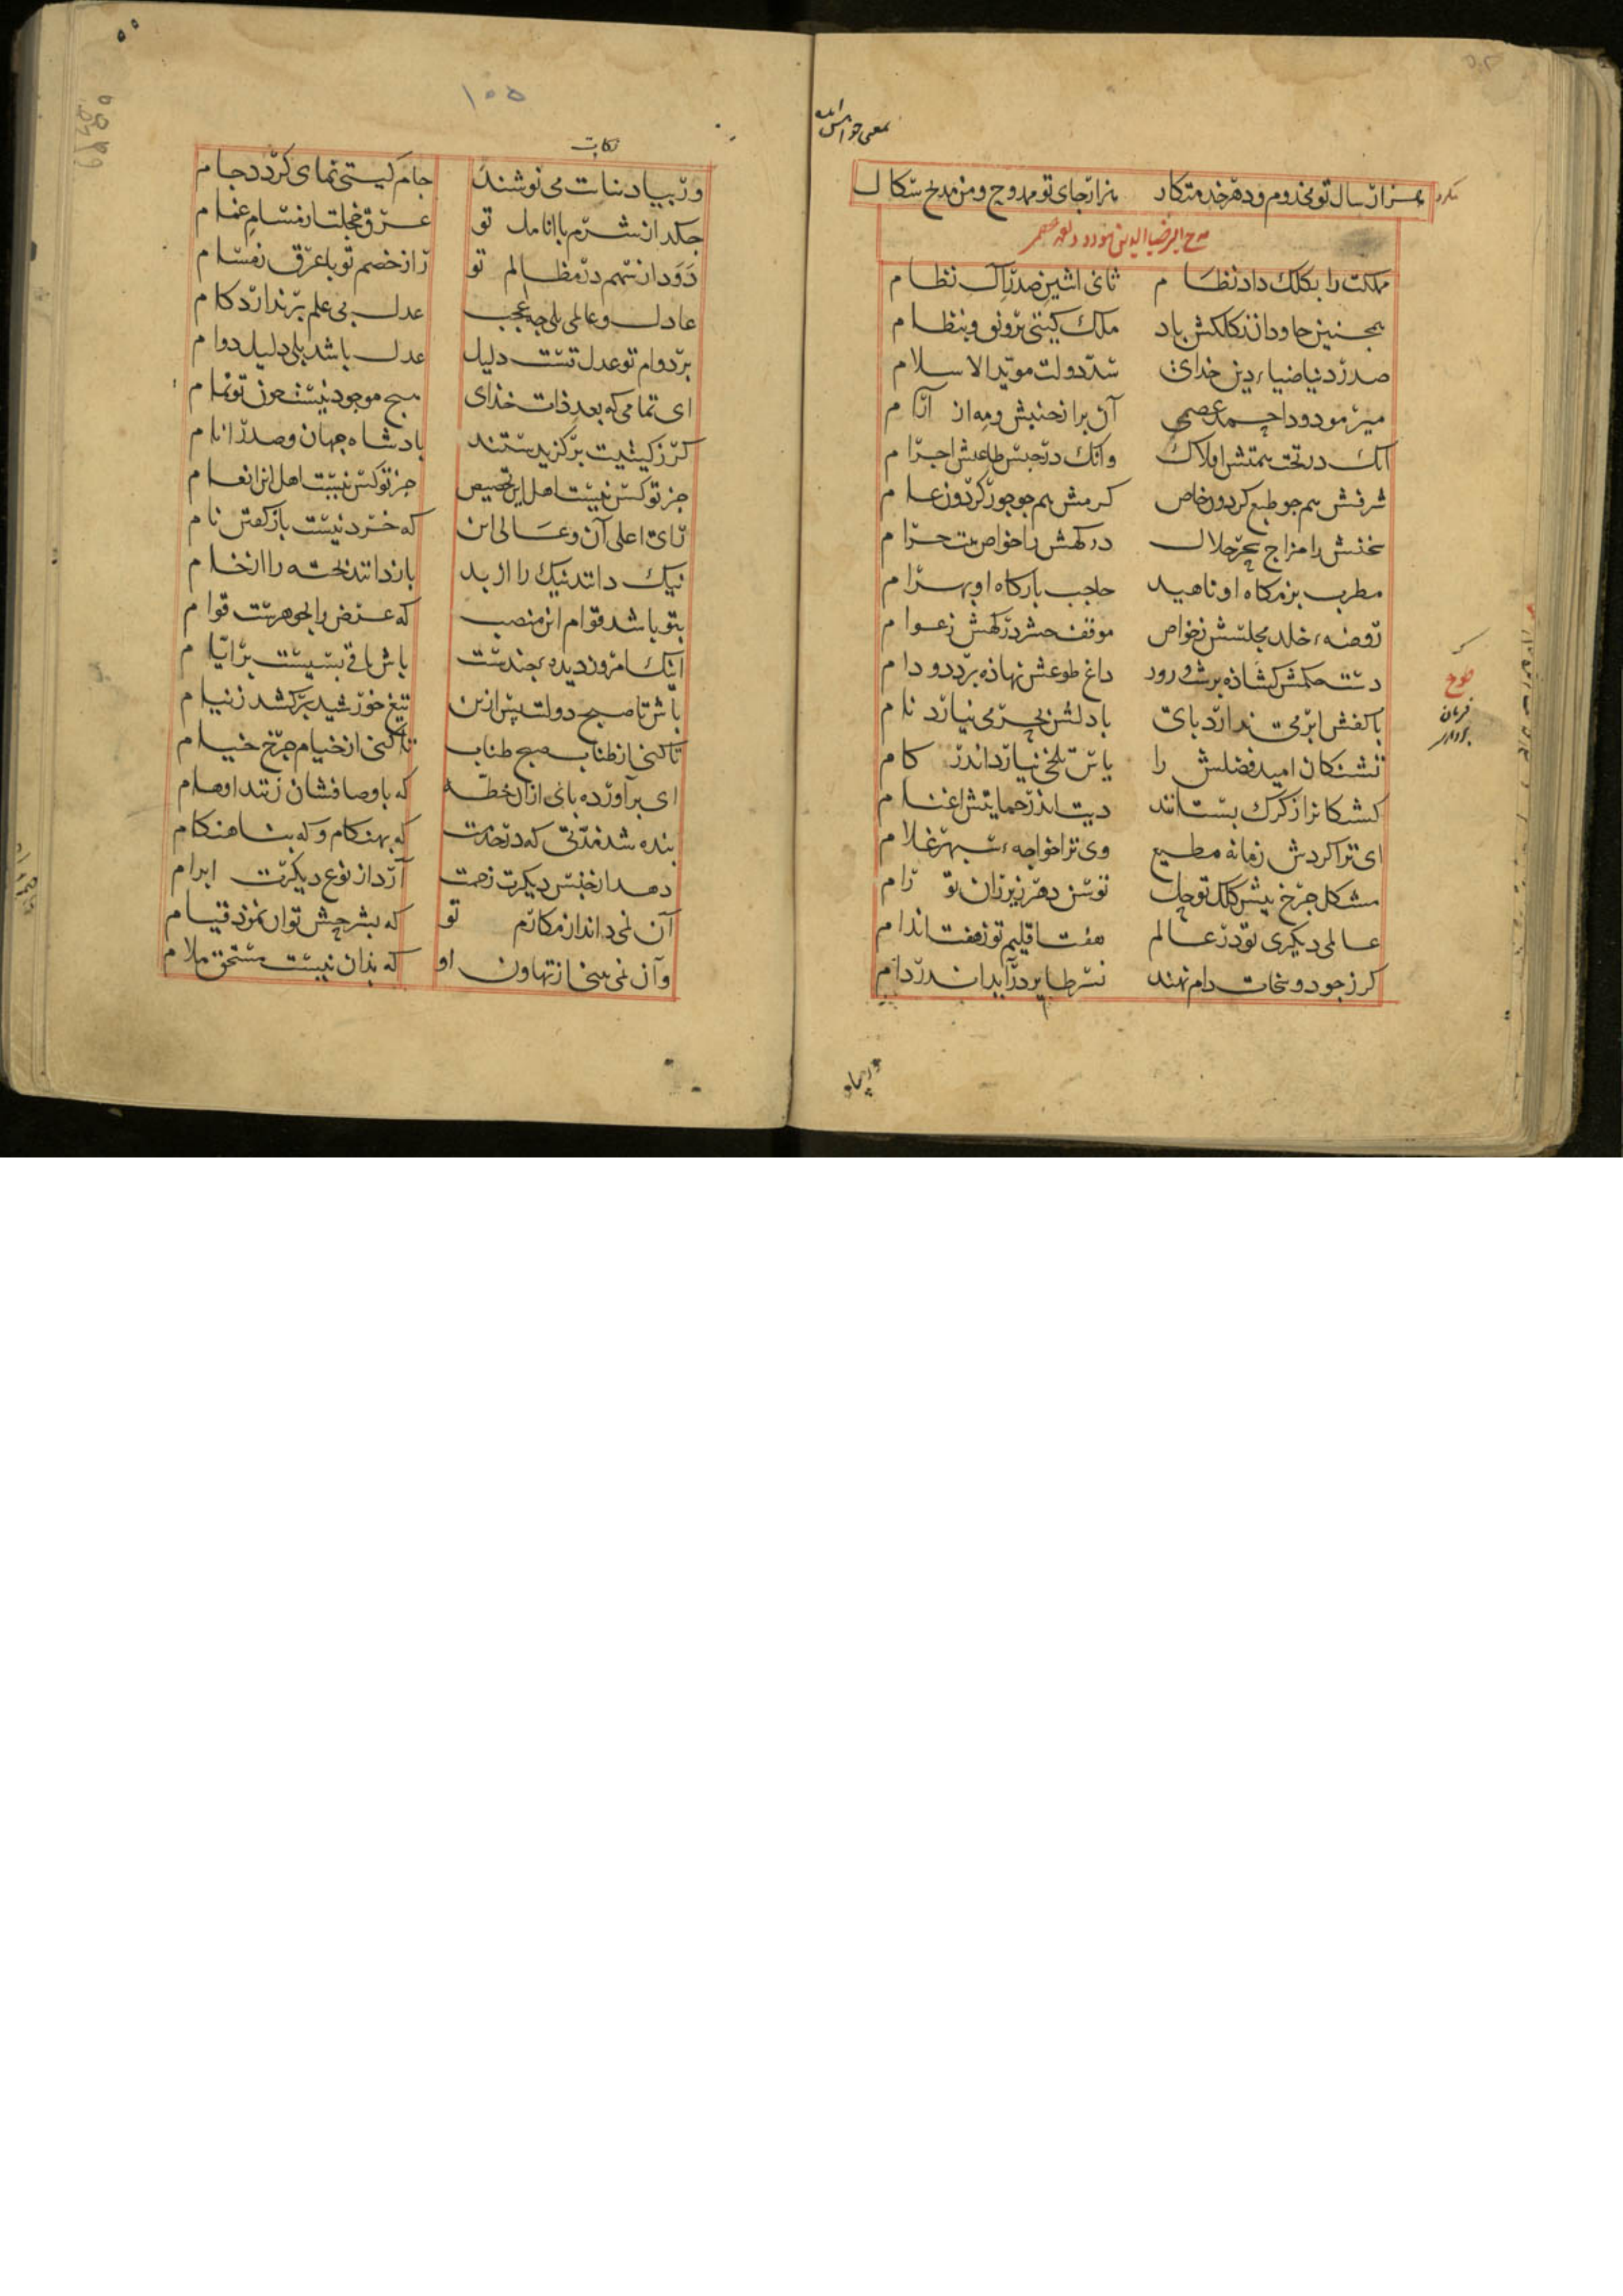 هزار سال تو مخدوم و دهر خدمتکار هزار جای تو ممدوح و من مدیح سکال
مملکت را بکلک داد نظام ثانی اثنین صدر آل نظام
همجنین جاودان ز کلکش باد ملک کیتی برونق و بنظام
صدر دنیا ضیاء دین خدای شد دولت موید الاسلام
میر مودود احمد عصمی آن بر از جنبش و مه از آرام
آنک در تحت همتش افلاک وانک در تحت طاعتش اجرام
شرفش همجو طبع کردون خاص کرمش همجو جور کردون عام
سخنش را مزاج سحر حلال درکهش را خواص بیت حرام
مطرب بزمکاه او ناهید حاجب بارکاه او بهرام
روضه خلد مجلسش ز خواص موقف حشر درکهش ز عوام
دست حکمش کشاذه بر شب و روز داغ طوعش نهاذه بر دد و دام
با کفش ابر می ندارد پای با دلش بحر می نیارد نام
تشنکان امید فضلش را یاس تلخی نیارد اندر کام
کشتکانرا ز کرک بستانند دیت اندر حمایتش اغنام
ای ترا کردش زمانه مطیع وی ترا خواجه سپهر غلام
مشکل جرخ پیش کلک تو حل توسن دهر زیر ران تو رام
عالمی دیکری تو در عالم هفت اقلیم تو ز هفت اندام
کر ز جود و سخات دام نهند نسر طایر در آید اندر دام
۱۰۵
ور بیاد بنات می نوشند جام کیتی نمای کردد جام
جکد از شرم با انامل تو عرق خجلت از مسام غمام
دود از سهم در مظالم تو راز خصم تو با عرق ز مسام
عادل و عالمی بلی چه عجب عدل بی علم بر ندارد کام
بر دوام تو عدل تست دلیل عدل باشد بلی دلیل دوام
ای تمامی که بعد ذات خذای هیچ موجود نیست جون تو تمام
کر ز کیتیت برکزیدستند بادشاه جهان و صدر انام
جز تو کس نیست اهل این تخصیص جز تو کس نیست اهل این انعام
رای اعلی آن و عالی این که خرد نیست بازکفتن نام
نیک دانند نیک را از بد باز دانند پخته را از خام
بتو باشد قوام این منصب که عرض را بجوهرست قوام
اینک امروز دیده جندست باش باقی بسیست بر ایام
باش تا صبح دولت بس ازین تیغ خورشید برکشد ز نیام
تا کنی از طناب صبح طناب تا کنی از خیام جرخ خیام
ای برآورده بای از آن خطه که باوصافشان رسد اوهام
بنده شد مدتی که در خدمت که بهنکام و که بنا هنکام
دهد از جنس دیکرت زحمت آرد از نوع دیکرت ابرام
آن نمی داند از مکارم تو که بشرحیش توان نمود قیام
وآن نمی بیند از تهاون او که بذان نیست مستحق ملام